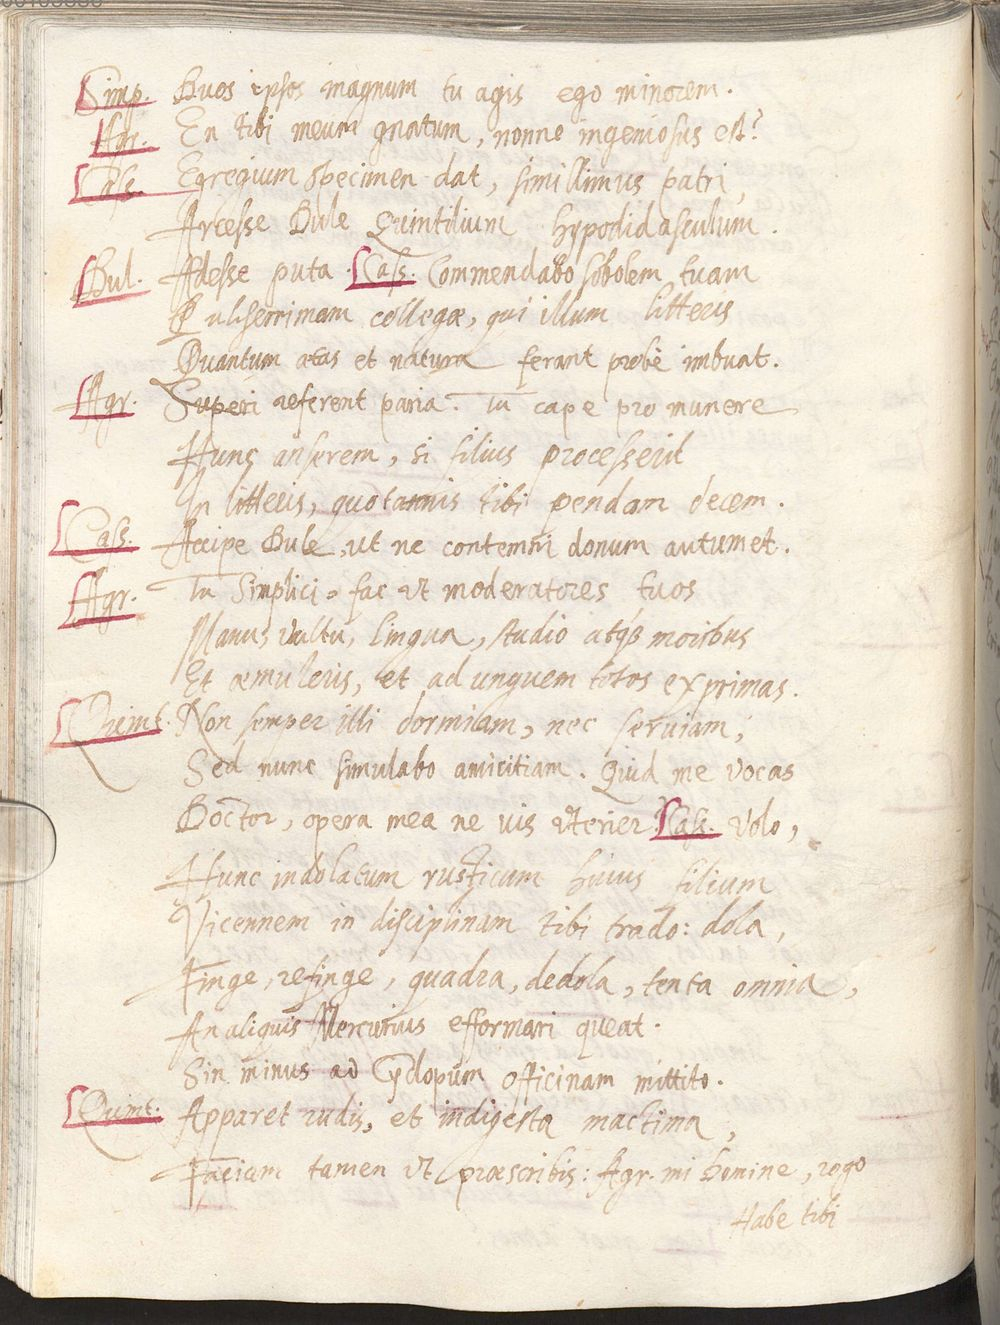 Simp. Duos ipsos magnum tu agis ego minorem.
Agr. En tibi meum gnatum, nonne ingeniosus est?
Cass. Egregium specimen dat, simillimus patri,
Arcesse Bule Quintilium hypodidasculum.
Bul. Adesse puta. Cass. Commendabo sobolem tuam
Pulcherrimam collegæ, qui illum litteris
Quantum ætas et natura ferant probè imbuat.
Agr. Superi referent paria. Tu cape pro munere
Hunc anserem, si filius processerit
In litteris, quotannis tibi pendam decem.
Cass. Accipe Bule, ut ne contemni donum autumet.
Agr. Tu Simplici, fac ut moderatores tuos
Manus vultu, lingua, studio atq3 moribus
Et æmuleris, et ad unguem totos exprimas.
Quint. Non semper illi dormiam, nec serviam;
Sed nunc simulabo amicitiam. Quid me vocas
Doctor, opera mea ne vis uterier? Cass. Volo,
Hunc indolatum rusticum huius filium
Vicennem in disciplinam tibi trado: dola,
Finge, refinge, quadra, dedola, tenta omnia,
An aliquis Mercurius efformari queat.
Sin minus ad Cyclopum officinam mittito.
Quint. Apparet rudis, et indigesta mactima,
Faciam tamen ut præscribis: Agr. mi homine, rogo
Habe tibi